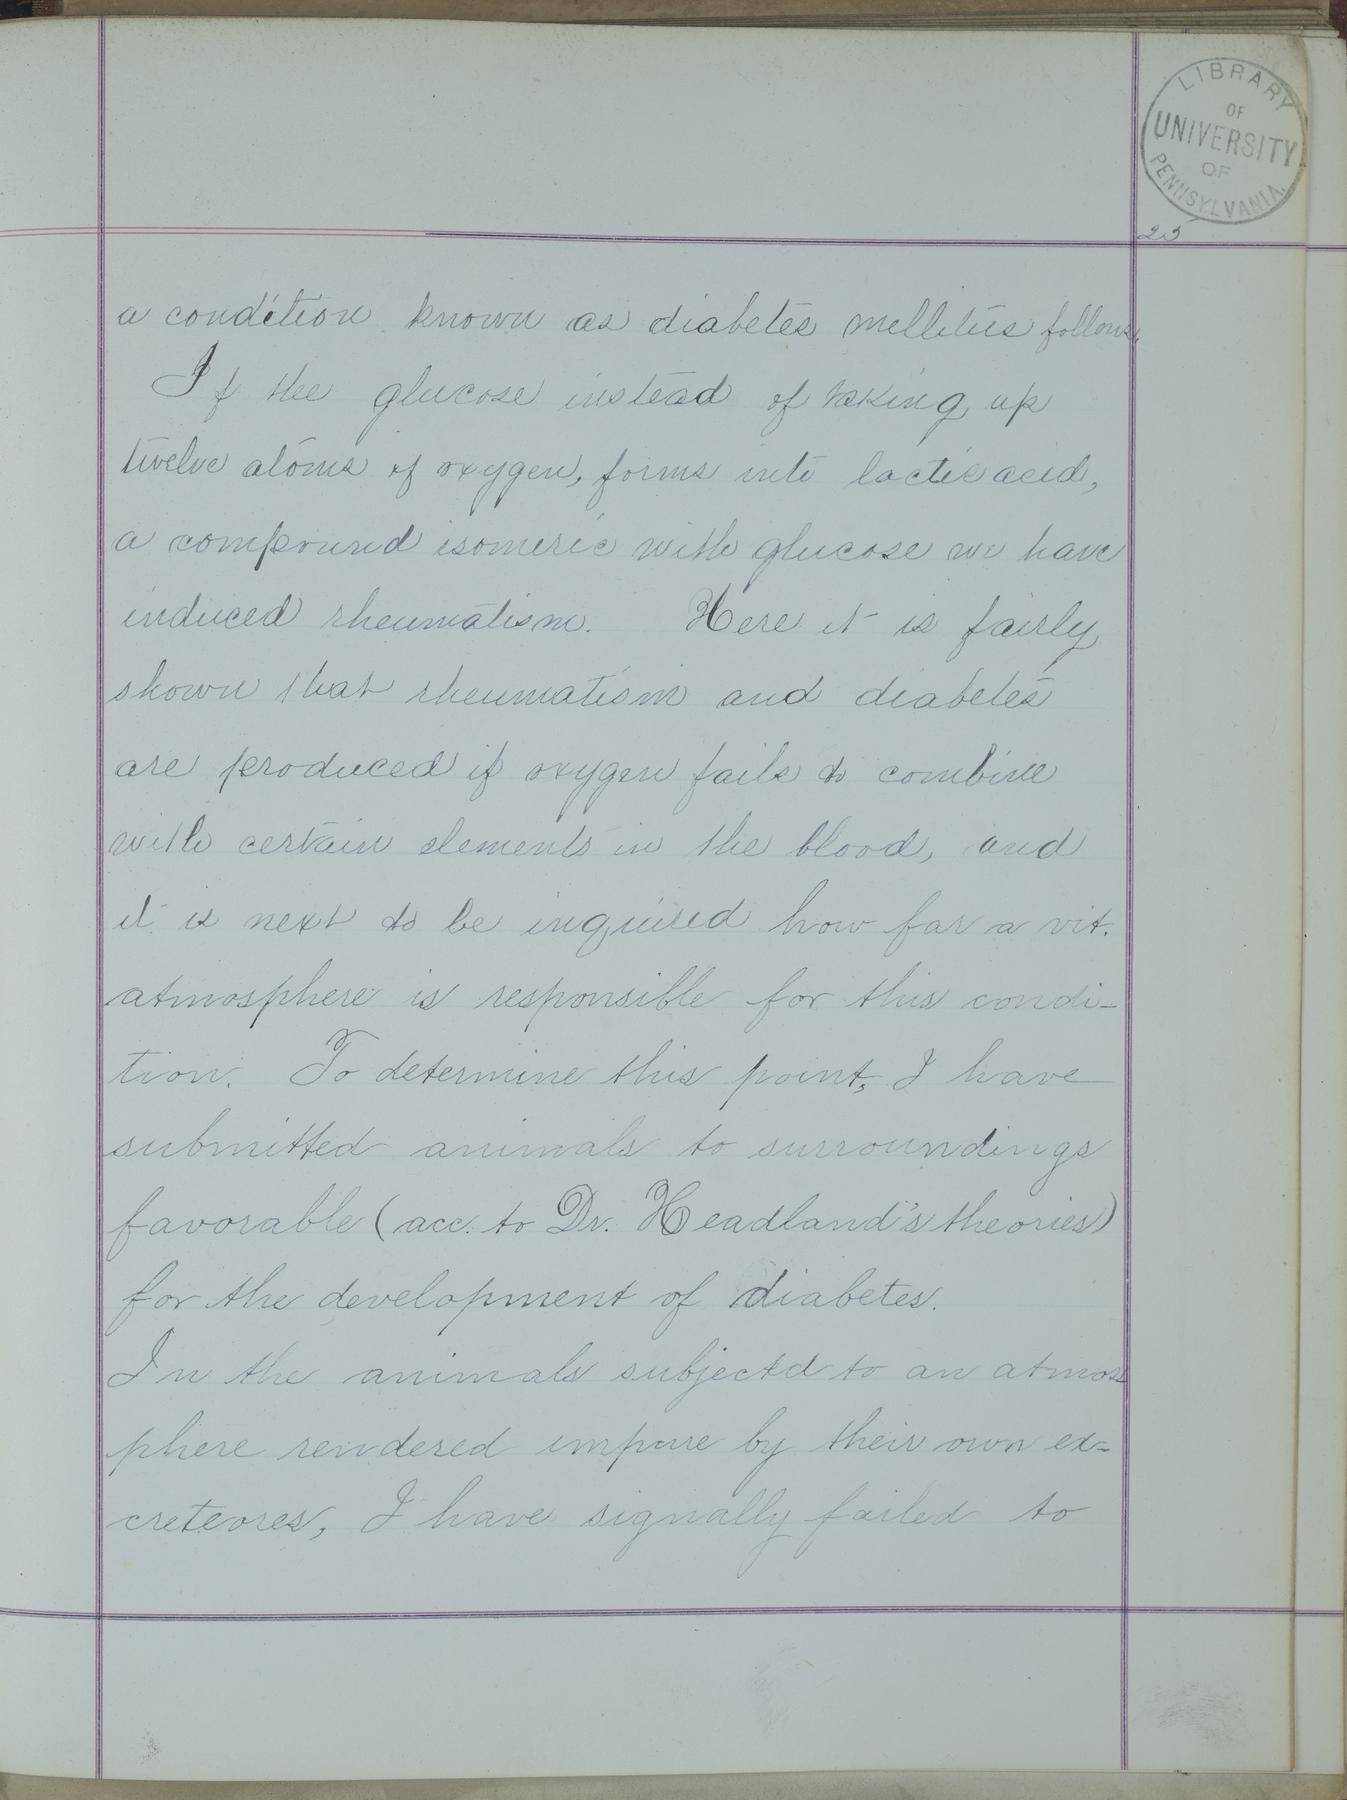 LIBRARY
OF
UNIVERSITY
OF
PENNSYLVANIA.
25
a condition known as diabetes mellitus follows.
If the glucose instead of taking up
twelve atoms of oxygen, forms into lactic acid,
a compound isomeric with glucose we have
induced rheumatism. Here it is fairly
shown that rheumatism and diabetes
are produced if oxygen fails to combine
with certain elements in the blood, and
it is next to be inquired how far a vit.
atmosphere is responsible for this condi-
tion. To determine this point, I have
submitted animals to surroundings
favorable (acc. to Dr. Headland's theories)
for the development of diabetes.
In the animals subjectd to an atmos
phere rendered impure by their own ex=
creteores, I have signally failed to